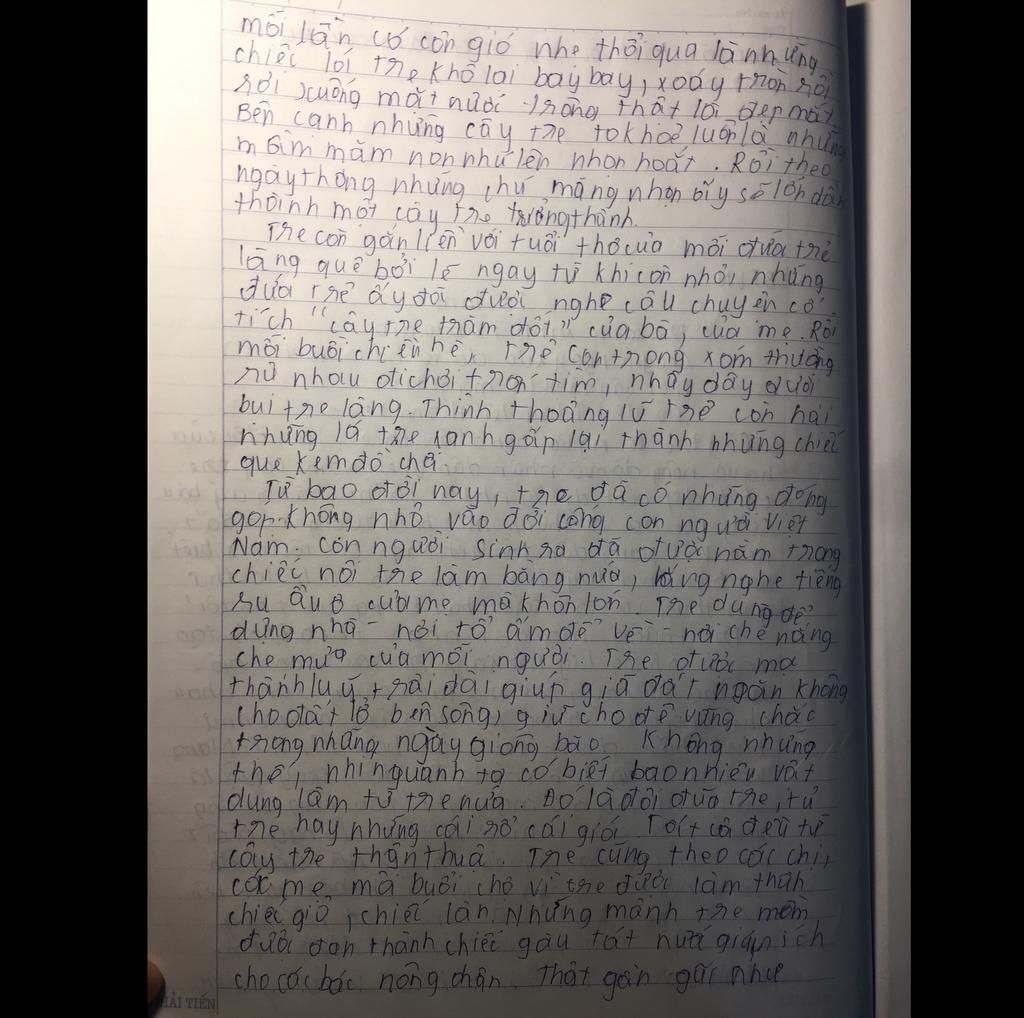 mỗi lần có cơn gió nhẹ thổi qua là những
chiếc lói tre khô lại bay bay, xoáy tròn rồi
rơi xuống mặt nước trông thật lôi đẹp mắt
Bên cạnh những cây tre to khoẻ luôn là những
mầm măm non nhú lên nhọn hoắt. Rồi theo
ngày tháng những chú măng nhọn ấy sẽ lớn dần
thành một cây tre trưởng thành.
Tre còn gắn liền với tuổi thơ của mỗi đứa trẻ
làng quê bởi lẽ ngay từ khi còn nhỏ, những
đứa trẻ ấy đã được nghe câu chuyện cổ
tích "cây tre trăm đốt" của bà, của mẹ. Rồi
mỗi buổi chiền hè, trẻ con trong xóm thường
rủ nhau đi chơi trốn tìm, nhảy dây dưới
bụi tre làng. Thỉnh thoảng lũ trẻ còn hái
những lá tre xanh gấp lại thành những chiếc
que kem đồ chơi.
Từ bao đời nay, tre đã có những đóng
góp không nhỏ vào đời cống con người Việt
Nam. Con người sinh ra đã được nằm trong
chiếc nôi tre làm bằng nứa, lắng nghe tiếng
ru ầu ơ của mẹ mà khôn lớn. Tre dùng để
dựng nhà - nơi tổ ấm để về - nơi che nắng
che mưa của mỗi người. Tre được mọc
thành luỹ, trải dài giúp giữ đất ngăn không
cho đất lở bên sông, giữ cho đê vững chắc
trong những ngày giông bão. Không những
thế, nhìn quanh ta có biết bao nhiêu vật
dụng làm từ tre nữa. Đó là đôi đũa tre, tủ
tre hay những cái rổ cái giá. Tất cả đều từ
cây tre thân thuộ. Tre cũng theo các chị,
các mẹ mỗi buổi chợ vì tre được làm thàh
chiếc giỏ, chiếc làn. Những mảnh tre mềm
được đan thành chiếc gàu tát nước giản ích
cho các bác nông chân. Thật gần gũi như
HẢI TIẾN